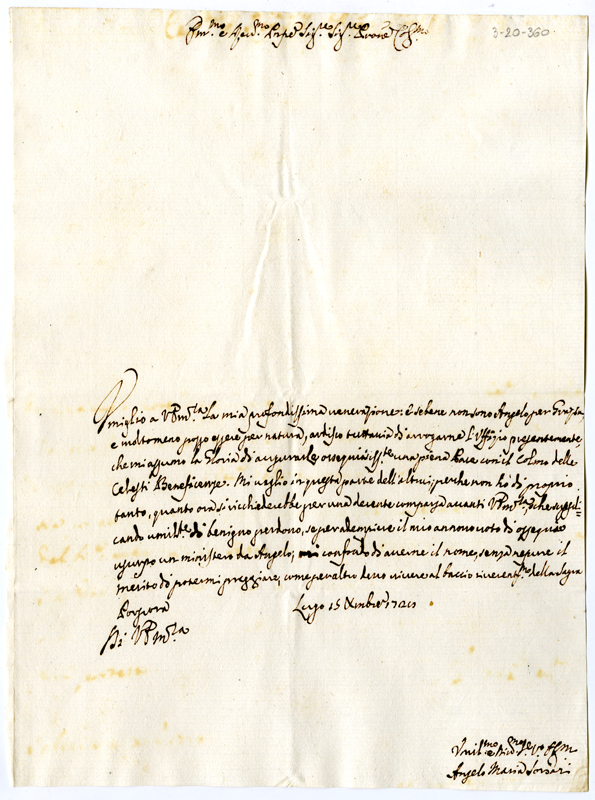 Em.mo e Rev.mo Prpe Sig.re Sig.re Prone Col.mo
3-20-360.
Umiglio a V. Em.za la mia profondissima venerazione: e sebene non sono Angelo per Grazia
e molto meno posso essere per natura, ardisco tuttavia di arrogarne l'Uffizio presentemente,
che mi assumo la Gloria di augurarle ossequiosiss.te una piena Pace con il Colmo delle
Celesti Beneficenze. Mi voglio in questa parte dell'altrui, perche non ho di proprio
tanto, quanto ora si richiederebbe per una decente comparsa avanti V. Em.za, che suppli=
cando umilm.te di benigno perdono, se per adempire il mio annuo voto di ossequio
usurpo un ministero da Angelo; mi confondo di averne il nome, senza nepure il
merito di potermi pregiare, come per altro devo vivere al baccio riverent.mo della Sagra
Porpora
Di V. Em.za
Lugo 15 Xmbre
Umil.mo
Angelo Maria